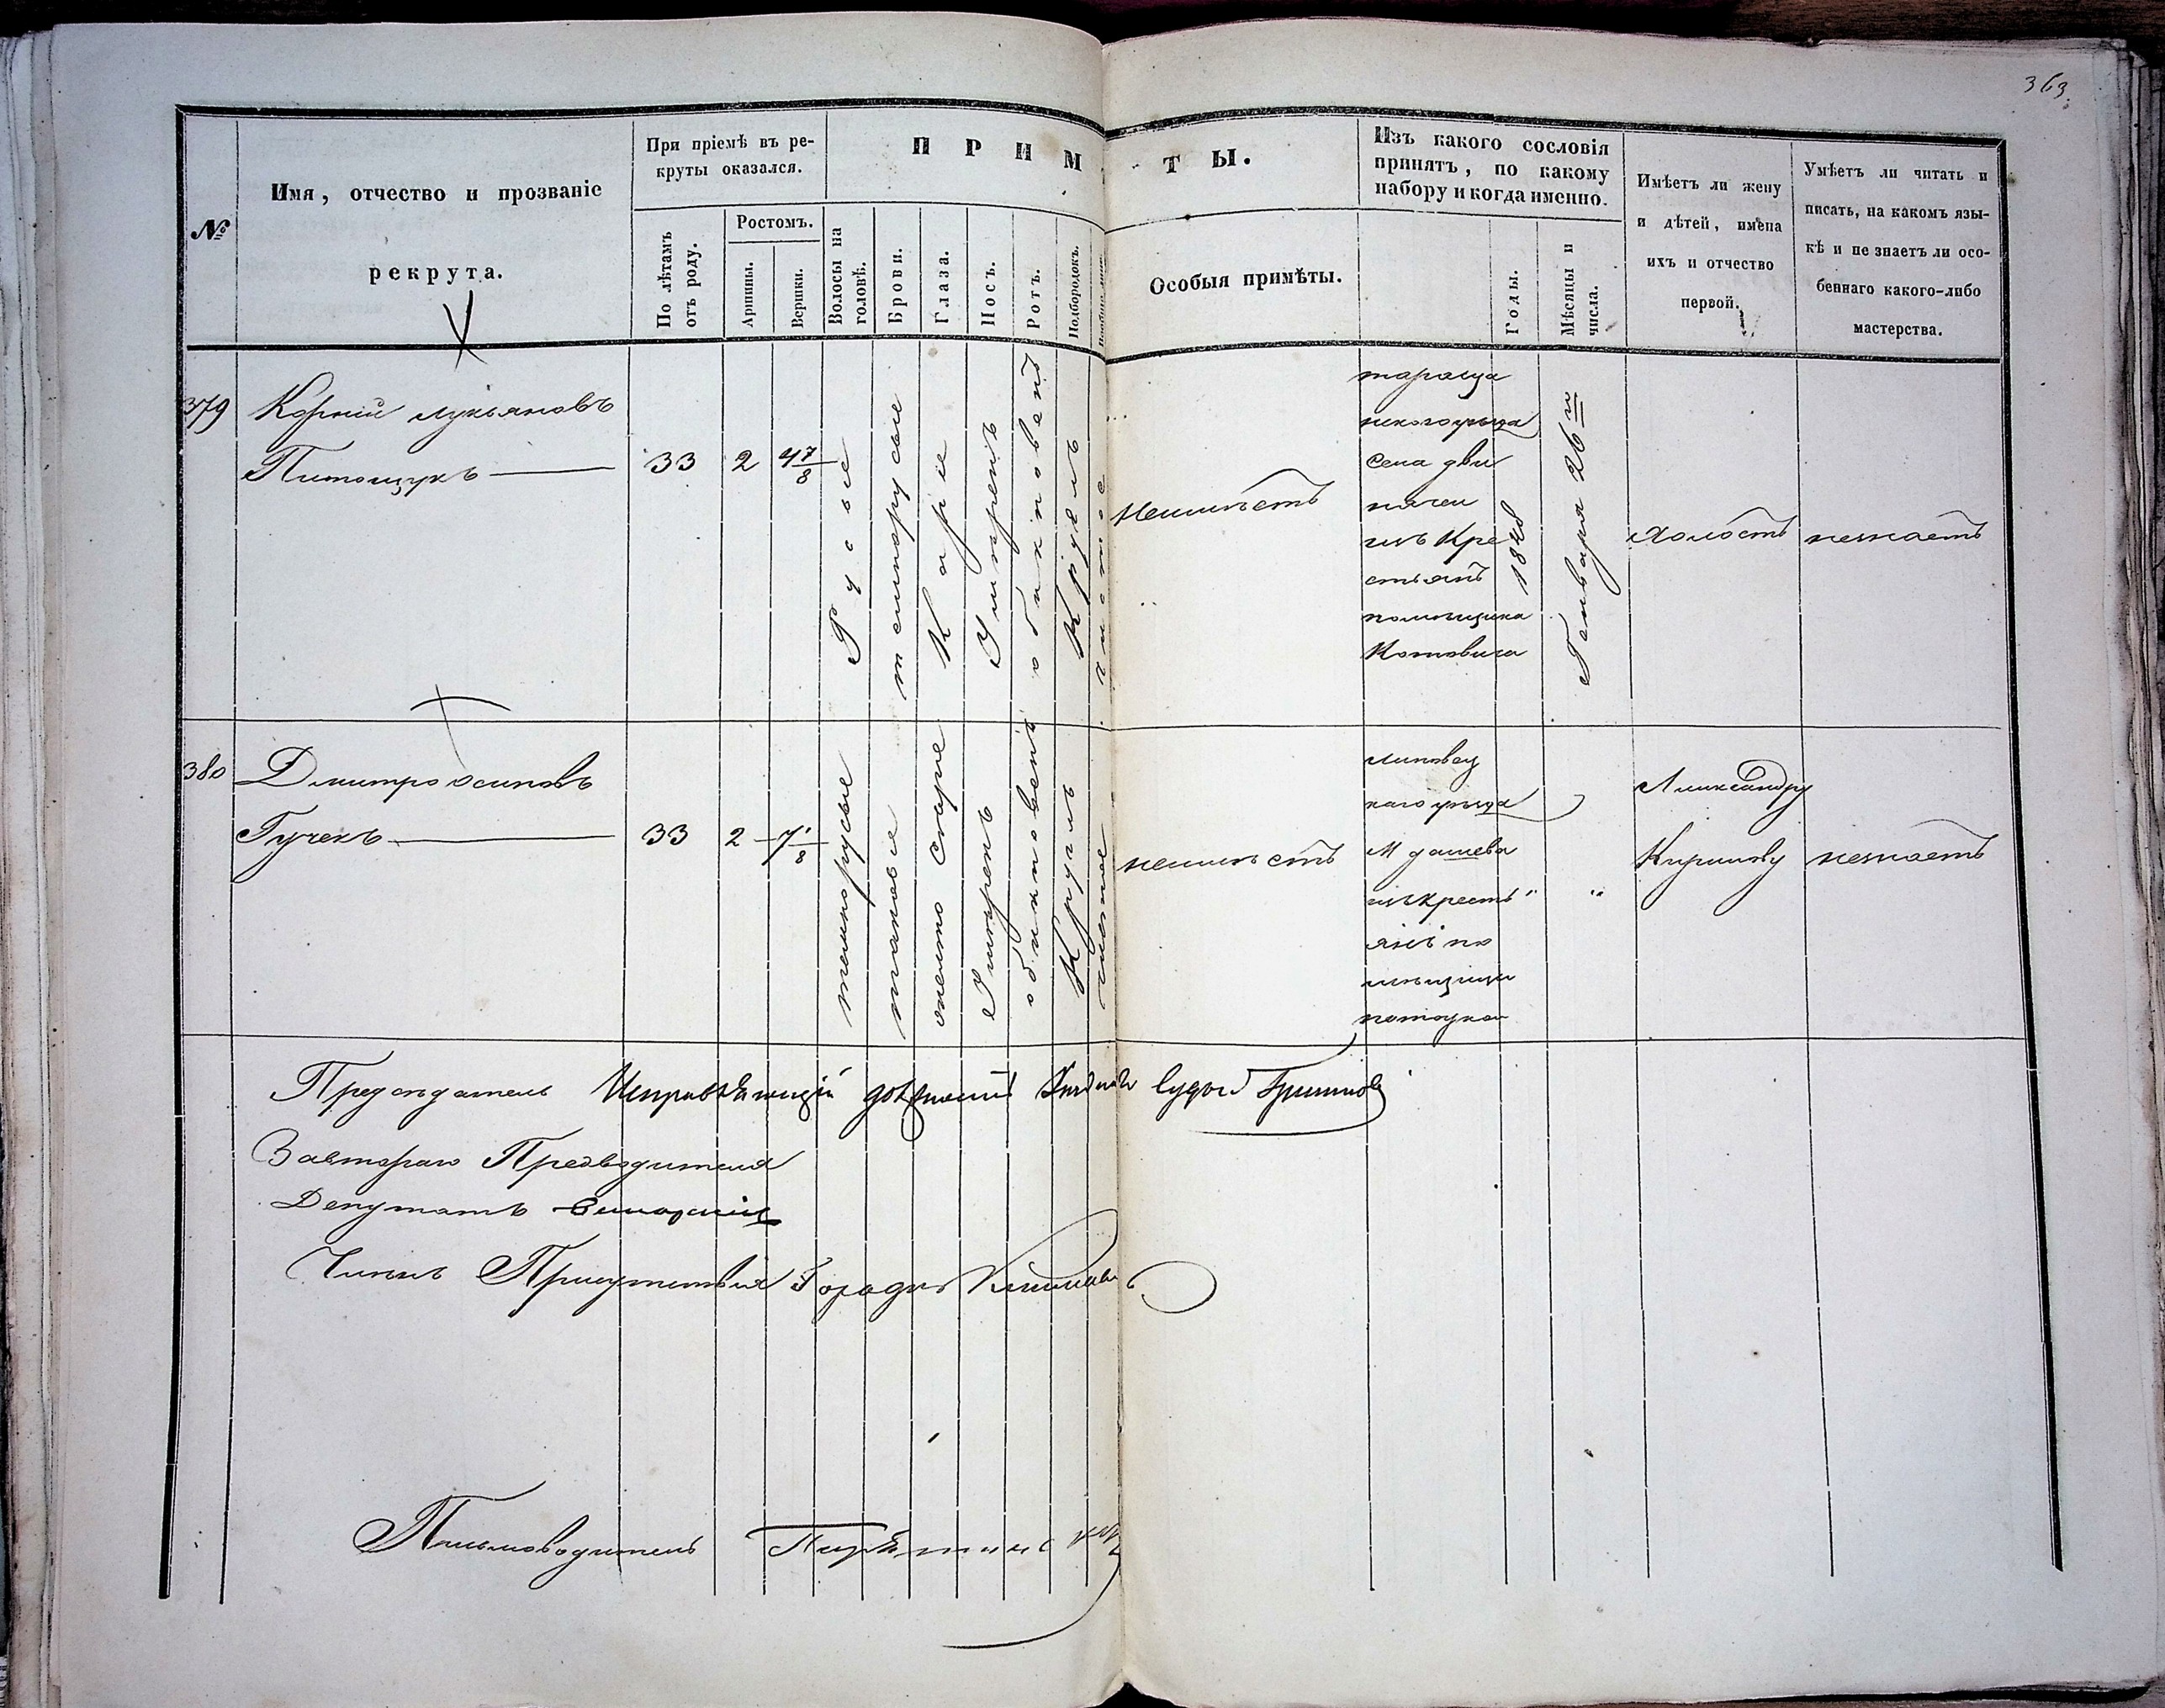 363.
№
Имя, отчество и прозваніе
рекрута.
При пріемѣ въ ре-
круты оказался.
По лѣтамъ
отъ роду.
Ростомъ.
Аршины.
Вершки.
ПРИМ
ТЫ.
Волосы на
головѣ.
Брови.
Глаза.
Носъ.
Ротъ.
Подбородокъ.
Особыя примѣты.
Изъ какого сословія
принятъ, по какому
набору и когда именно.
Годы.
Мѣсяцы и
числа.
Имѣетъ ли жену
и дѣтей, имена
ихъ и отчество
первой.
Умѣетъ ли читать и
писать, на какомъ язы-
кѣ и не знаетъ ли осо-
беннаго какого-либо
мастерства.
379
Корній лукьяновъ
33
2
4 7/8
Русые
темнорусые
Каріе
Умѣренъ
обыкновенъ
Круглъ
чистое
неимѣетъ
тараща
нскогоуѣзда
Села
изъ Кре
стьянъ
помѣщика
Котовича
Генваря 26 го
холостъ
незнаетъ
380
Дмитро осиповъ
Гучекъ
33
2
7 1/8
темнорусые
таковые
темно сѣрые
Умѣренъ
обыкновенъ
Круглъ
чистое
неимѣетъ
липовец
каго уѣзда
М дашева
изъ кресть
янъ по
мѣщицы
потоцкой
"
"
Александру
Киримову
незнаетъ
Предсѣдатель Исправляющій должность Судьи
За втораго Предводителя
Депутатъ
Членъ Присутствія
Письмоводитель